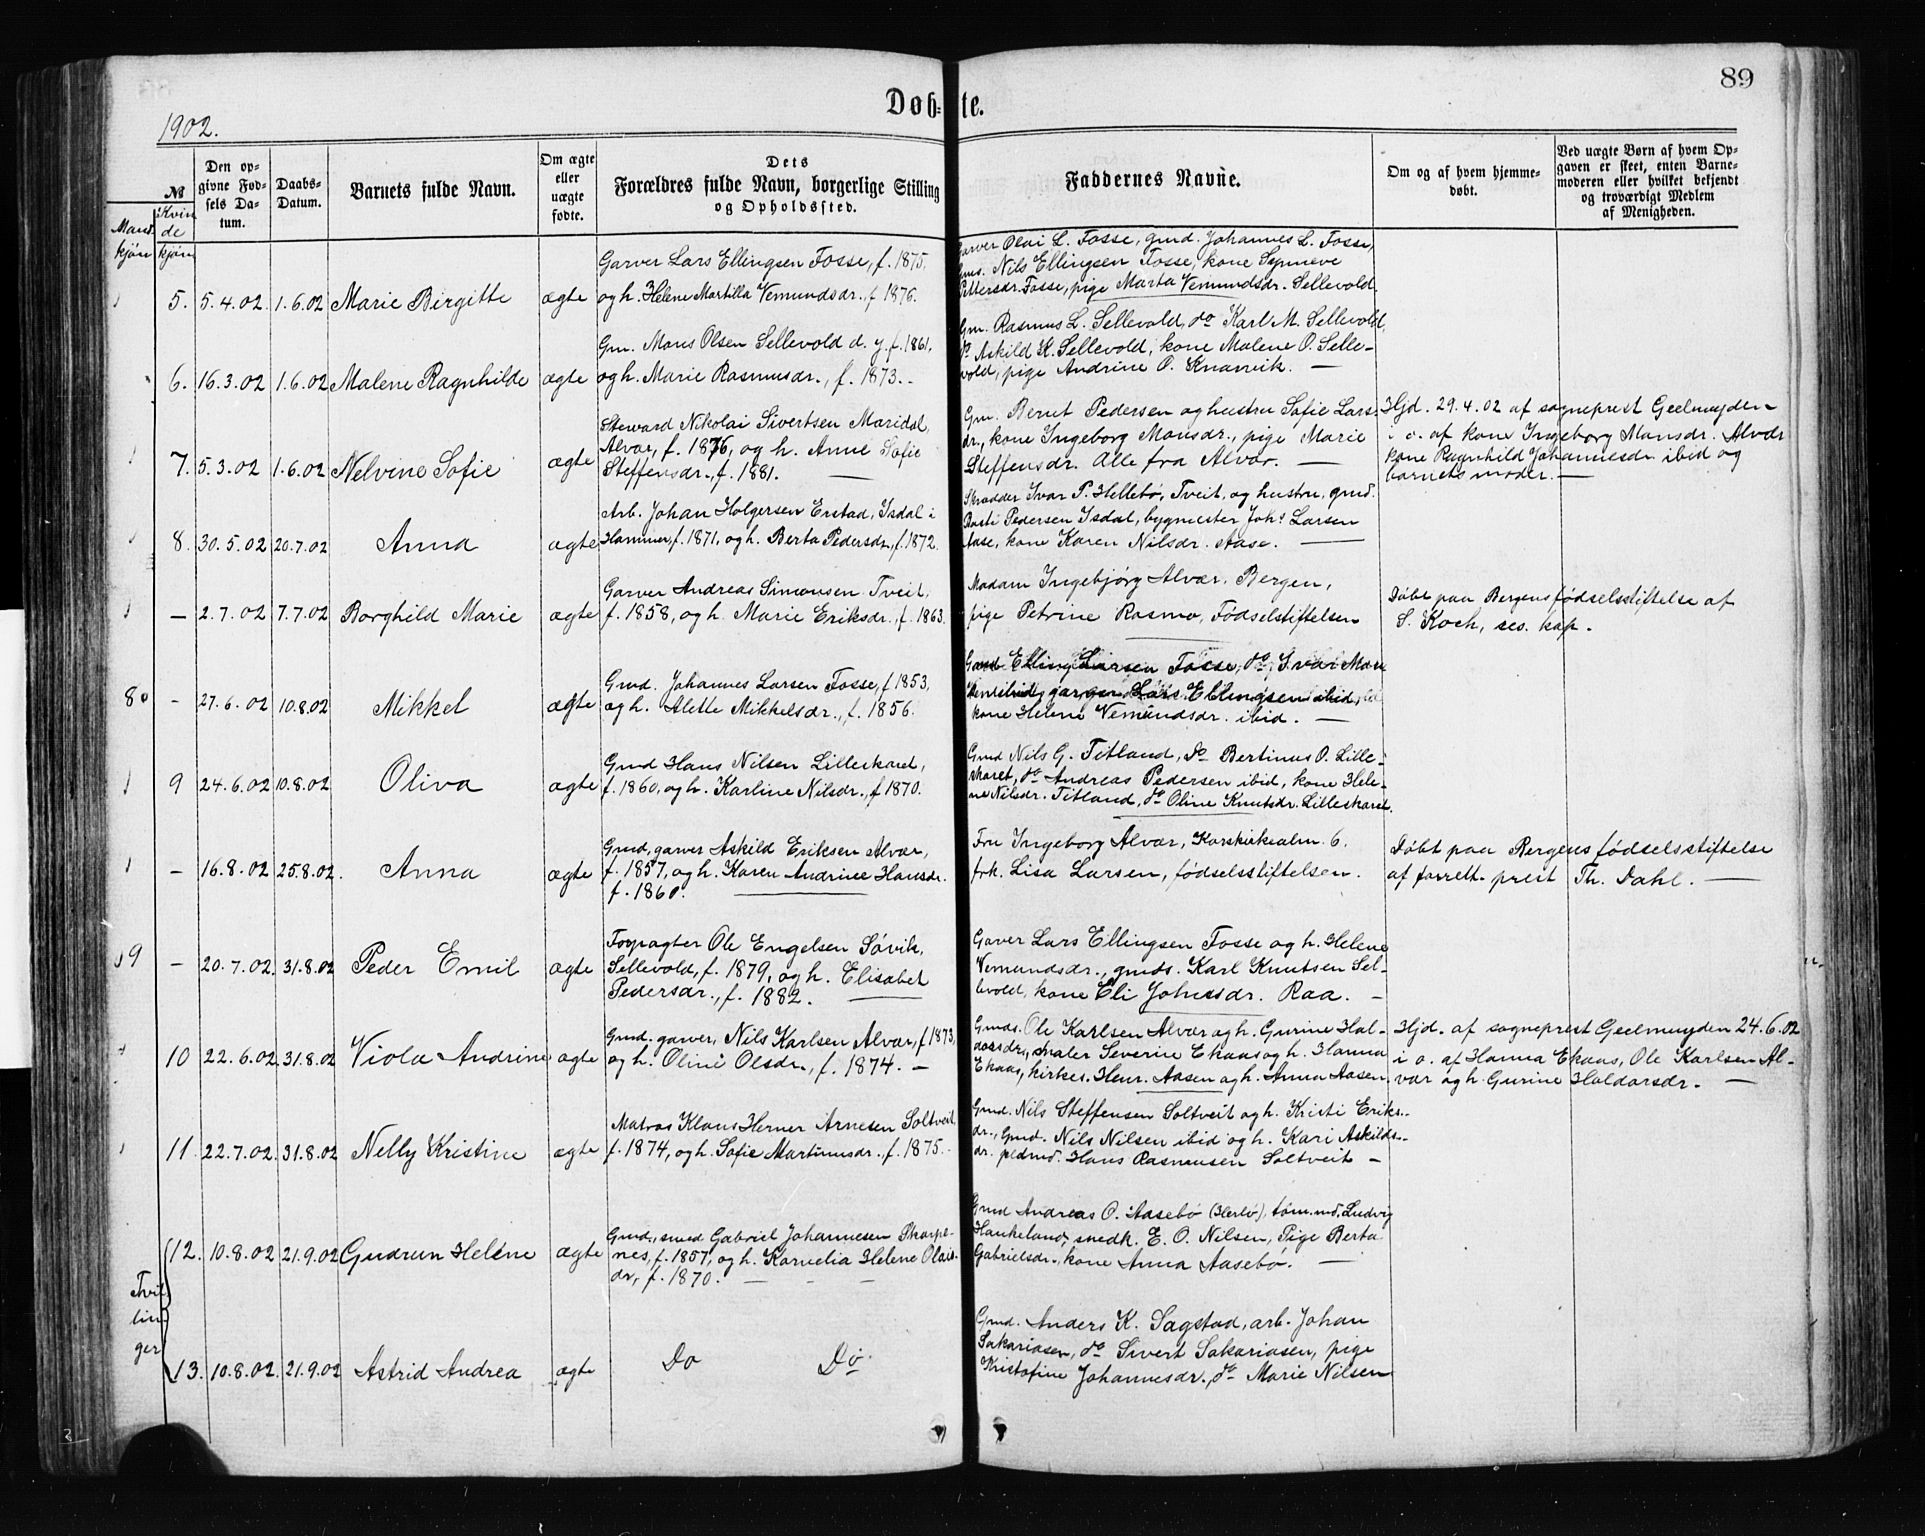 89
Døb-te.
1902.
№
Mand kjøn
Kvin de kjøn
Den opgivne Fødsels Datum.
Daabs-Datum.
Barnets fulde Navn.
Om ægte eller uægte fødte.
Dets Forældres fulde Navn, borgerlige Stilling og Opholdssted.
Faddernes Navne.
Om og af hvem hjemmedøbt.
Ved uægte Børn af hvem Opgaven er skeet, enten Barnemoderen eller hvilket bekjendt og troværdigt Medlem af Menigheden.
5. 5.4.02 1.6.02 Marie Birgitte ægte
Garver Lars Ellingsen Fosse, f. 1875,
og h. Helene Martilla Vemundsdr., f. 1876.
Garver Olai L. Fosse, gmd. Johannes L. Fosse,
gms. Nils Ellingsen Fosse, kone Synneve
Pittersdr. Fosse, pige Marta Vemundsdr. Sellevold
6. 16.3.02 1.6.02 Malene Ragnhilde ægte
Gm. Mons Olsen Sellevold d. y. f. 1861,
og h. Marie Rasmusdr., f. 1873.
Gm. Rasmus L. Sellevold, do Karl M. Sellevold,
do Askild K. Sellevold, kone Malene O. Selle-
vold, pige Andrine O. Knarvik.
7. 5.3.02 1.6.02 Nelvine Sofie ægte
Steward Nikolai Sivertsen Maridal,
Alvær, f. 1876, og h. Anne Sofie
Steffensdr., f. 1881.
Gm. Bernt Pedersen og hustru Sofie Lars-
dr., kone Ingeborg Monsdr., pige Marie
Steffensdr. Alle fra Alvær.
Hjd. 29.4.02 af sogneprest Geelmuyden
i o. af kone Ingeborg Monsdr. Alvær
kone Ragnhild Johannesdr ibid og
barnets moder.
8. 30.5.02 20.7.02 Anna ægte
Arb. Johan Holgersen Erstad, Isdal i
Hammer, f. 1871, og h. Berta Pedersdr., f. 1872.
Skrædder Ivar P. Hellebø, Tveit, og hustru, gmd.
Rasti Pedersen Isdal, bygmester Johs Larsen
Aase, kone Karen Nilsdr. Aase.
- 2.7.02 7.7.02 Borghild Marie ægte
Garver Andreas Simonsen Tveit,
f. 1858, og h. Marie Eriksdr., f. 1863.
Madam Ingebjørg Alvær, Bergen,
pige Petrine Rasmo, Fødselstiftelsen
Døbt paa Bergens fødselsstiftelse af
S. Koch, res. kap.
8 - 27.6.02 10.8.02 Mikkel ægte
Gmd. Johannes Larsen Fosse, f. 1853,
og h. Alette Mikkelsdr., f. 1856.
Gmd Elling Larsen Fosse, do Ivar Mons
garver Lars Ellingsen ibid,
kone Helene Vemundsdr. ibid.
9 24.6.02 10.8.02 Oliva ægte
Gmd Hans Nilsen Lilleskaret,
f. 1860, og h. Karline Nilsdr., f. 1870.
Gmd Nils G. Titland, do Bertinus O. Lille-
skaret, do Andreas Pedersen ibid, kone Hele-
ne Nilsdr. Titland, do Oline Knutsdr. Lilleskaret.
- 16.8.02 25.8.02. Anna ægte
Gmd, garver Askild Eriksen Alvær,
f. 1857, og h. Karen Andrine Hansdr.
f. 1860.
Fru Ingeborg Alvær, Korskirkealm. 6.
frk. Lisa Larsen, fødselsstiftelsen.
Døbt paa Bergens fødselsstiftelse
af forrett. prest Th. Dahl.
9 - 20.7.02. 31.8.02 Peder Emil ægte
Forpagter Ole Engelsen Søvik,
Sellevold, f. 1879, og h. Elisabet
Pedersdr., f. 1882.
Gaver Lars Ellingsen Fosse og h. Helene
Vemundsdr., gmds. Karl Knutsen Sel-
levold, kone Eli Johnsdr. Raa.
10 22.6.02. 31.8.02 Viola Andrine ægte
Gmd. garver, Nils Karlsen Alvær, f. 1873,
og h. Oline Olsdr., f. 1874.
Gmds. Ole Karlsen Alvær og h. Gurine Hal-
dorsdr., maler Severin Ekaas og h. Hanna
Ekaas, kirkes. Henr. Aasen og h. Anna Aasen.
Hjd. af sogneprest Geelmuyden 24.6.02
i o. af Hanna Ekaas, Ole Karlsen Al-
vær og h. Gurine Haldorsdr.
11 22.7.02. 31.8.02 Nelly Kristine ægte
Matros Klaus Herner Arnesen Soltveit,
f. 1874, og h. Sofie Martinusdr., f. 1875.
Gmd. Nils Steffensen Soltveit og h. Kristi Eriks-
dr., Gmd. Nils Nilsen ibid og h. Kari Askilds-
dr. pldmd. Hans Rasmussen Soltveit
Tvil
lin-
ger
12. 10.8.02 21.9.02 Gudrun Helene ægte
Gmd., smed Gabriel Johannesen Skarpe-
nes, f. 1857, og h. Kornelia Helene Olais-
dr, f. 1870.
Gmd Andreas O. Aasebø (Herlø), tøm.md. Ludvig
Haukeland, snedk. E. O. Nilsen, Pige Berta
Gabrielsdr., kone Anna Aasebø.
13. 10.8.02. 21.9.02 Astrid Andrea ægte
Do Do
Gmd. Anders K. Sagstad, arb. Johan
Sakariasen, do Sivert Sakariasen, pige
Kristofine Johannesdr., do Marie Nilsen